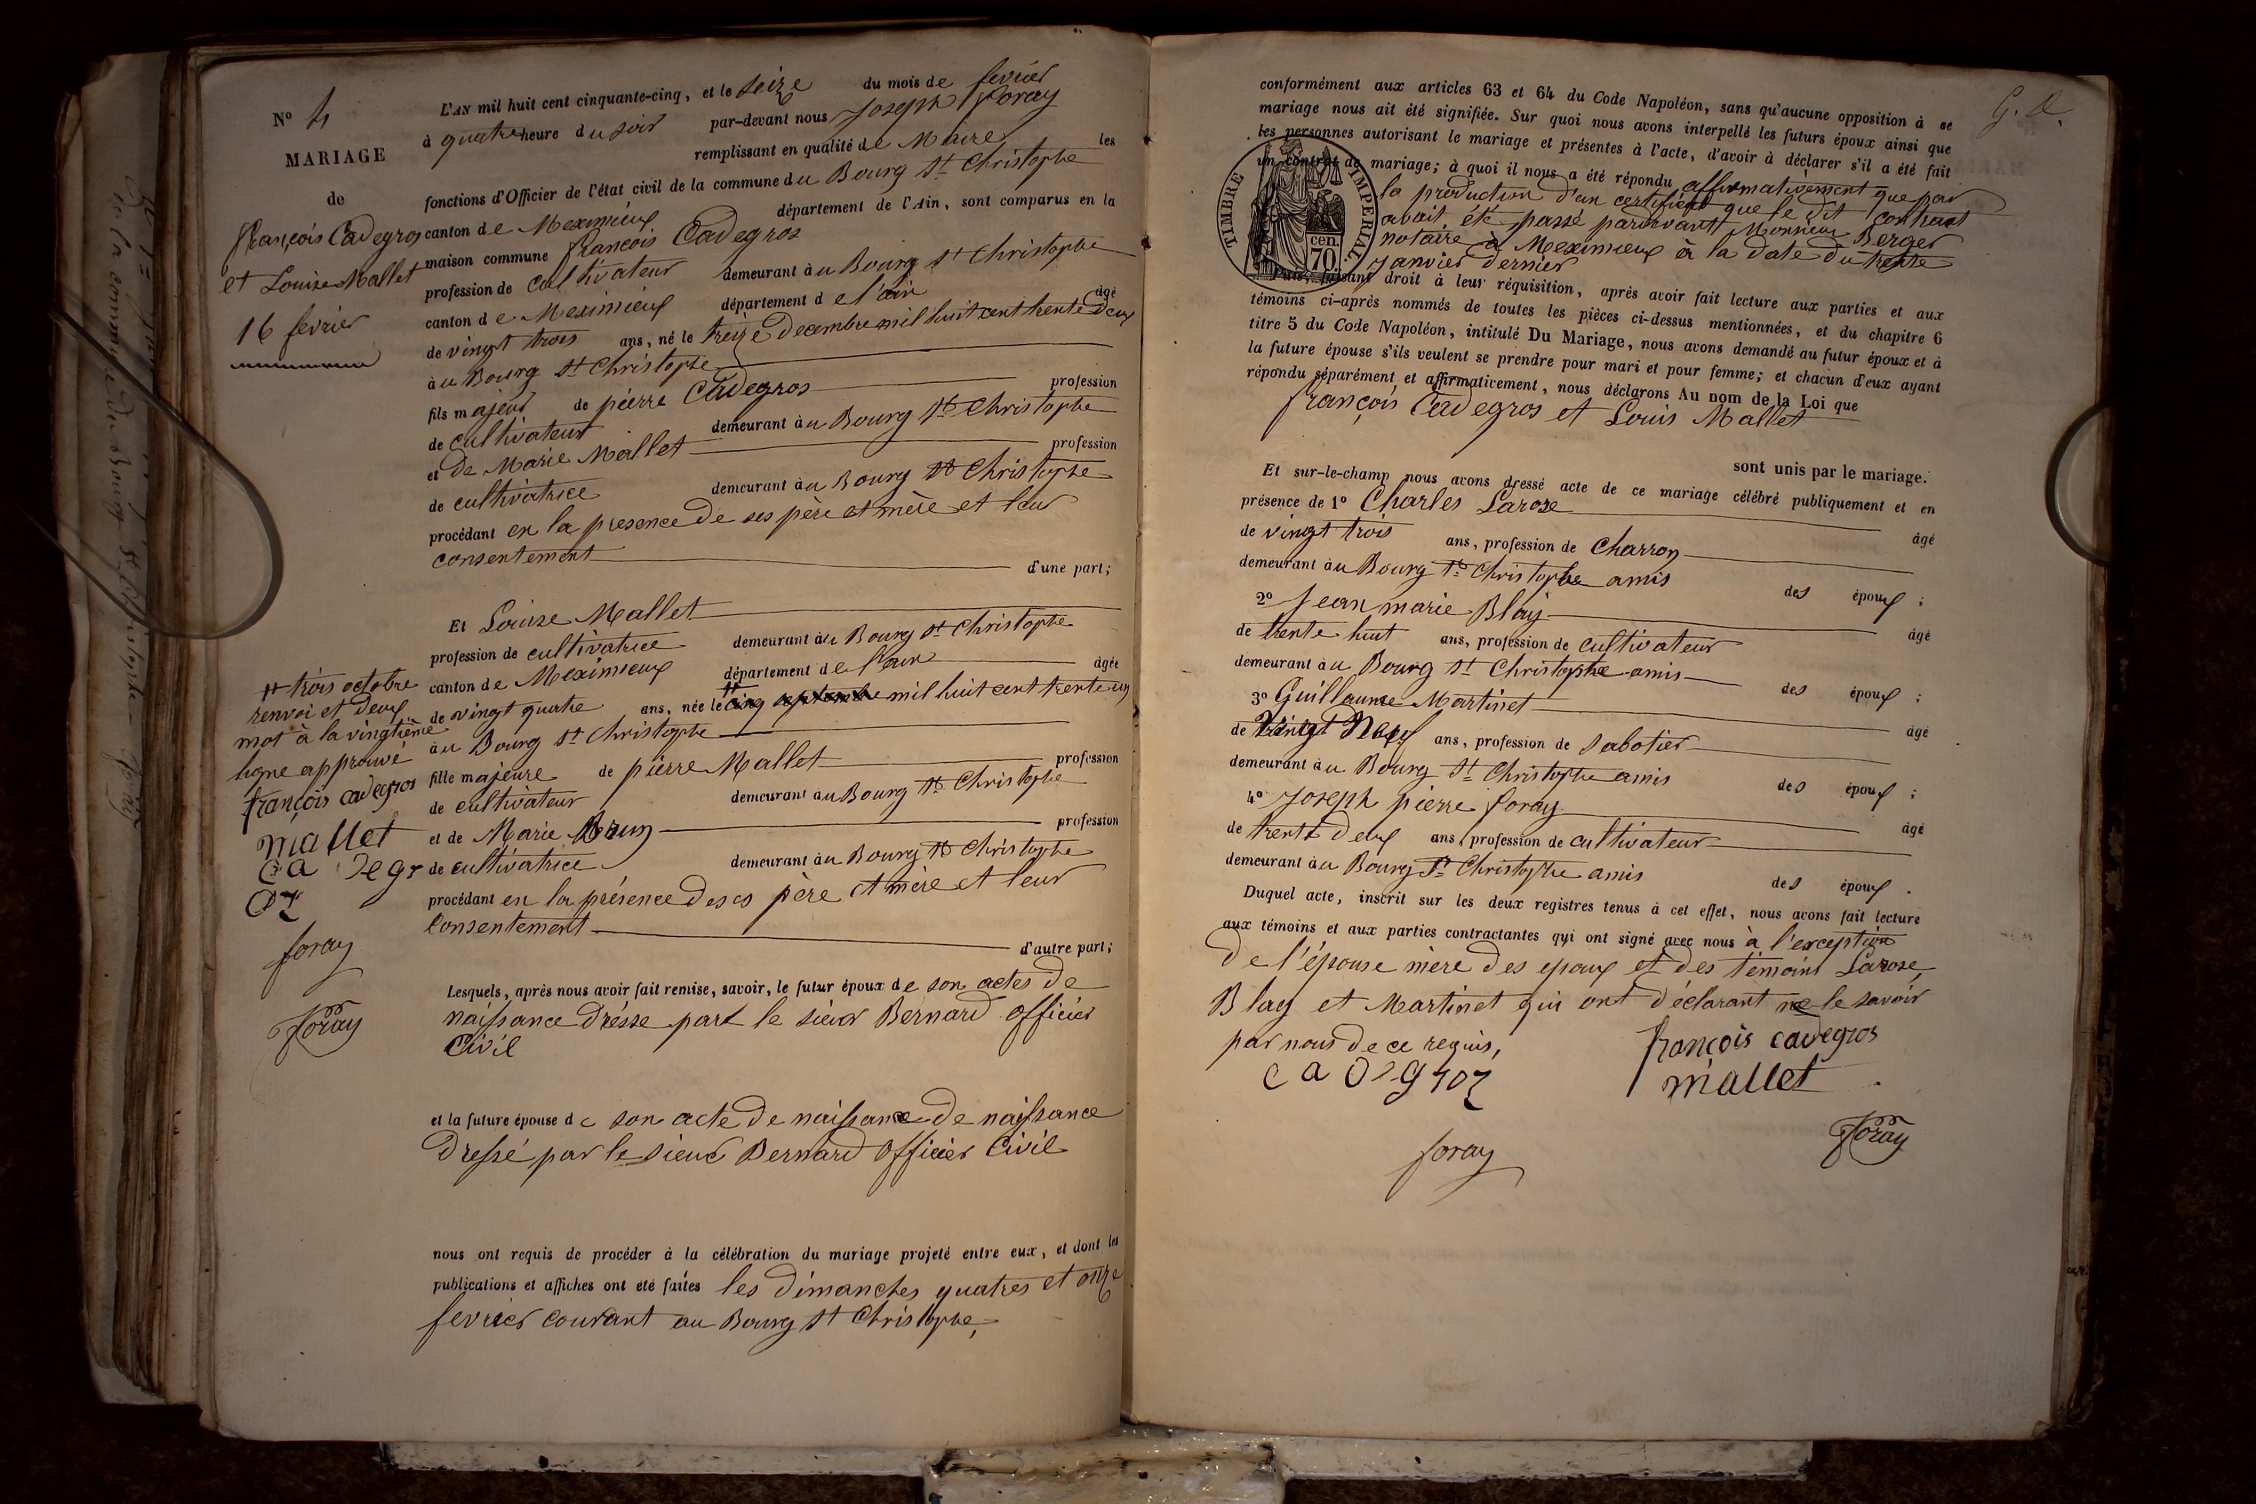 N° 4
MARIAGE
de
françois Cadegros
et Louise Mallet
16 fevrier
L'AN mil huit cent cinquante-cinq, et le seize du mois de fevrier
à quatre heure du soir par-devant nous Joseph Foray
remplissant en qualité de Maire les
fonctions d'Officier de l'état civil de la commune du Bourg St Christophe
canton de Meximieux département de l'Ain, sont comparus en la
maison commune françois Cadegros
profession de cultivateur demeurant au Bourg St Christophe
canton de Meximieux département de l'ain âgé
de vingt trois ans, né le treize Decembre mil huit cent trente Deux
au Bourg St Christophe
fils majeur de pierre Cadegros profession
de cultivateur demeurant au Bourg St Christophe
et de Marie Mallet profession
de cultivatrice demeurant au Bourg St Christophe
procédant en la presence de ses père et mère et leur
consentement d'une part;
Et Louise Mallet
profession de cultivatrice demeurant au Bourg St Christophe
canton de Meximieux département de l'ain âgée
de vingt quatre ans, née le cinq septembre mil huit cent trente un
au Bourg St Christophe
fille majeure de pierre Mallet profession
de cultivateur demeurant au Bourg St Christophe
et de Marie Brun profession
de cultivatrice demeurant au Bourg St Christophe
procédant en la présence de ses père et mère et leur
Consentement d'autre part;
trois octobre
renvoi et deux
mot à la vingtième
ligne approuvé
françois cadegros
mallet
ca degr
oz
foray
Foray
Lesquels, après nous avoir fait remise, savoir, le futur époux de son actes de
naissance drésse part le sieur Bernard officier
Civil
et la future épouse de son acte de naissance de naissance
Dressé par le sieur Bernard officier Civil
nous ont requis de procéder à la célébration du mariage projeté entre eux, et dont les
publications et affiches ont été faites les dimanches quatres et onze
fevrier courant au Bourg St Christophe,
G. D.
conformément aux articles 63 et 64 du Code Napoléon, sans qu'aucune opposition à ce
mariage nous ait été signifiée. Sur quoi nous avons interpellé les futurs époux ainsi que
les personnes autorisant le mariage et présentes à l'acte, d'avoir à déclarer s'il a été fait
un contrat de mariage; à quoi il nous a été répondu affirmativement que par
la production d'un certificat que le dit contract
avait été passé pardevant Monsieur Berger
notaire à Meximieux à la date du trente
janvier dernier
TIMBRE IMPERIAL
70 cen.
Puis, faisant droit à leur réquisition, après avoir fait lecture aux parties et aux
témoins ci-après nommés de toutes les pièces ci-dessus mentionnées, et du chapitre 6
titre 5 du Code Napoléon, intitulé Du Mariage, nous avons demandé au futur époux et à
la future épouse s'ils veulent se prendre pour mari et pour femme; et chacun d'eux ayant
répondu séparément et affirmativement, nous déclarons Au nom de la Loi que
françois Cadegros et Louis Mallet
sont unis par le mariage.
Et sur-le-champ nous avons dressé acte de ce mariage célébré publiquement et en
présence de 1° Charles Larose âgé
de vingt trois ans, profession de Charron
demeurant au Bourg St Christophe amis des époux ;
2° Jean marie Blay âgé
de trente huit ans, profession de cultivateur
demeurant au Bourg St Christophe amis des époux ;
3° Guillaume Martinet âgé
de vingt Neuf ans, profession de sabotier
demeurant au Bourg St Christophe amis des époux ;
4° Joseph pierre foray âgé
de trente deux ans, profession de cultivateur
demeurant au Bourg St Christophe amis des époux .
Duquel acte, inscrit sur les deux registres tenus à cet effet, nous avons fait lecture
aux témoins et aux parties contractantes qui ont signé avec nous à l'exception
de l'épouse mère des epoux et des témoins Larose
Blay et Martinet qui ont déclarant ne le savoir
par nous de ce requis,
françois cadegros
ca degroz
mallet
foray
Foray